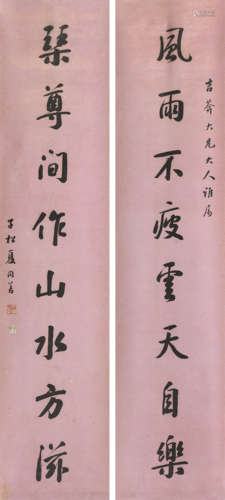 吉葊大兄大人雅属
風雨不疲雲天自樂
琹尊间作山水方滋
子松夏同善